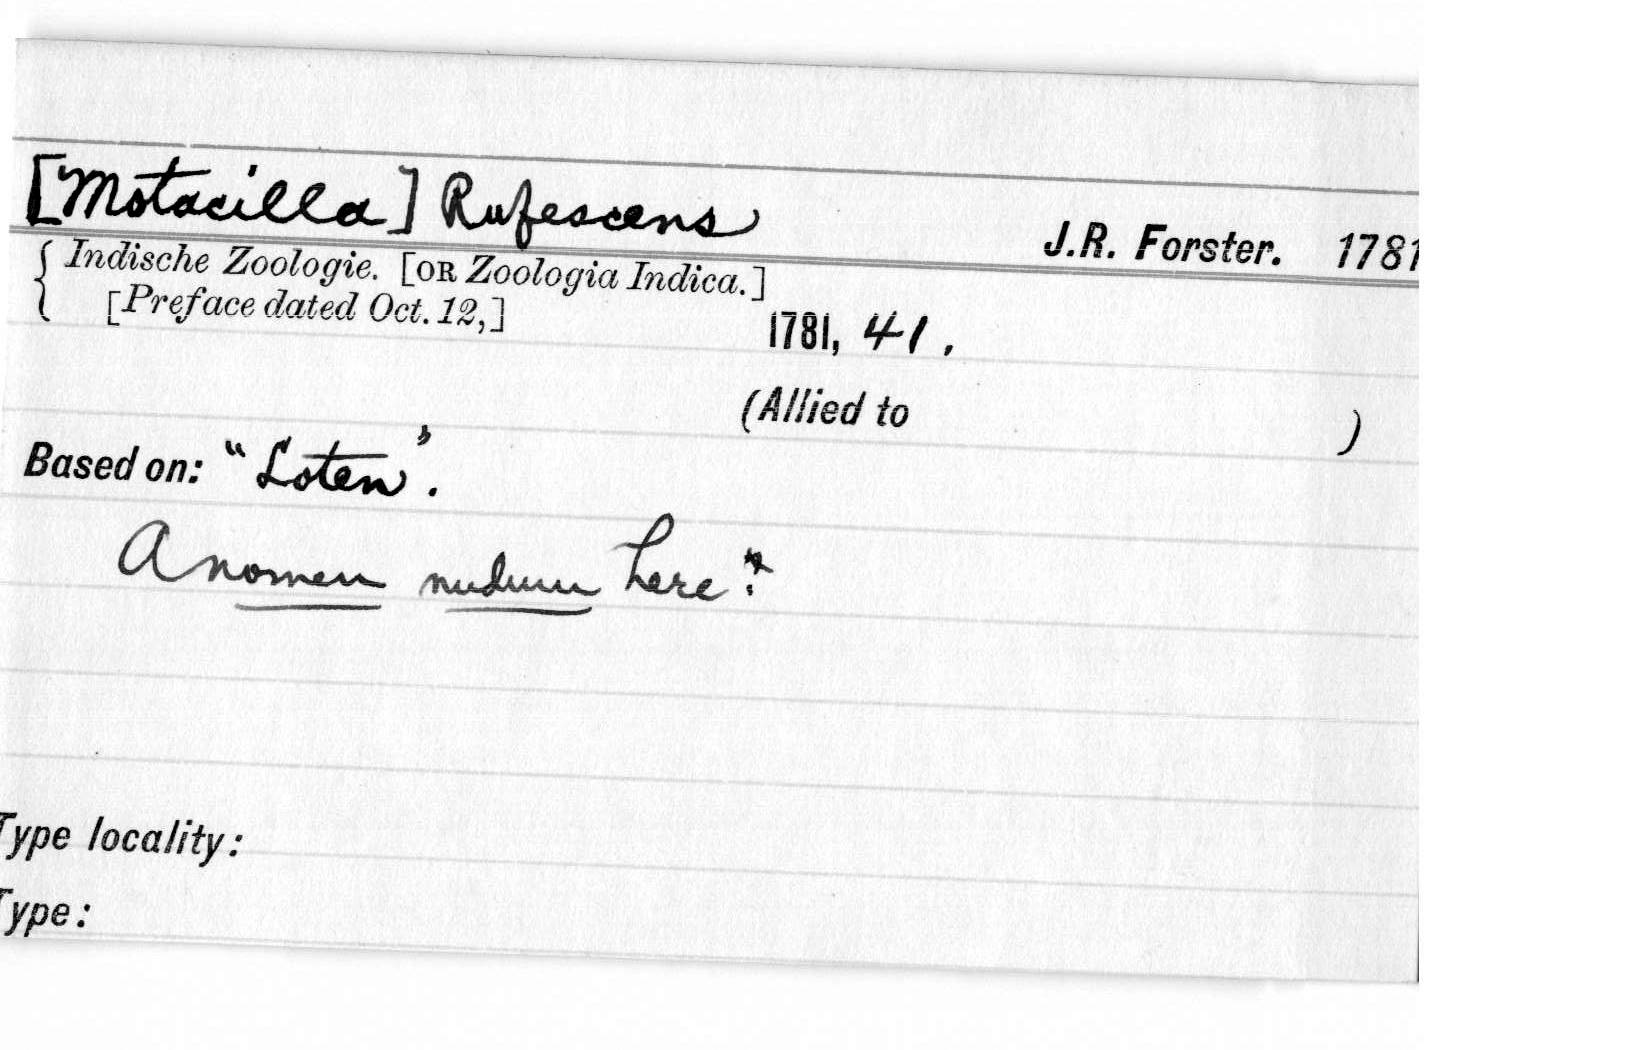 [Motacilla] Rufescens
J.R. Forster. 1781
{ Indische Zoologie. [OR Zoologia Indica.]
[Preface dated Oct. 12,]
1781, 41.
(Allied to )
Based on: "Loten".
A nomen nudum here?
Type locality:
Type: